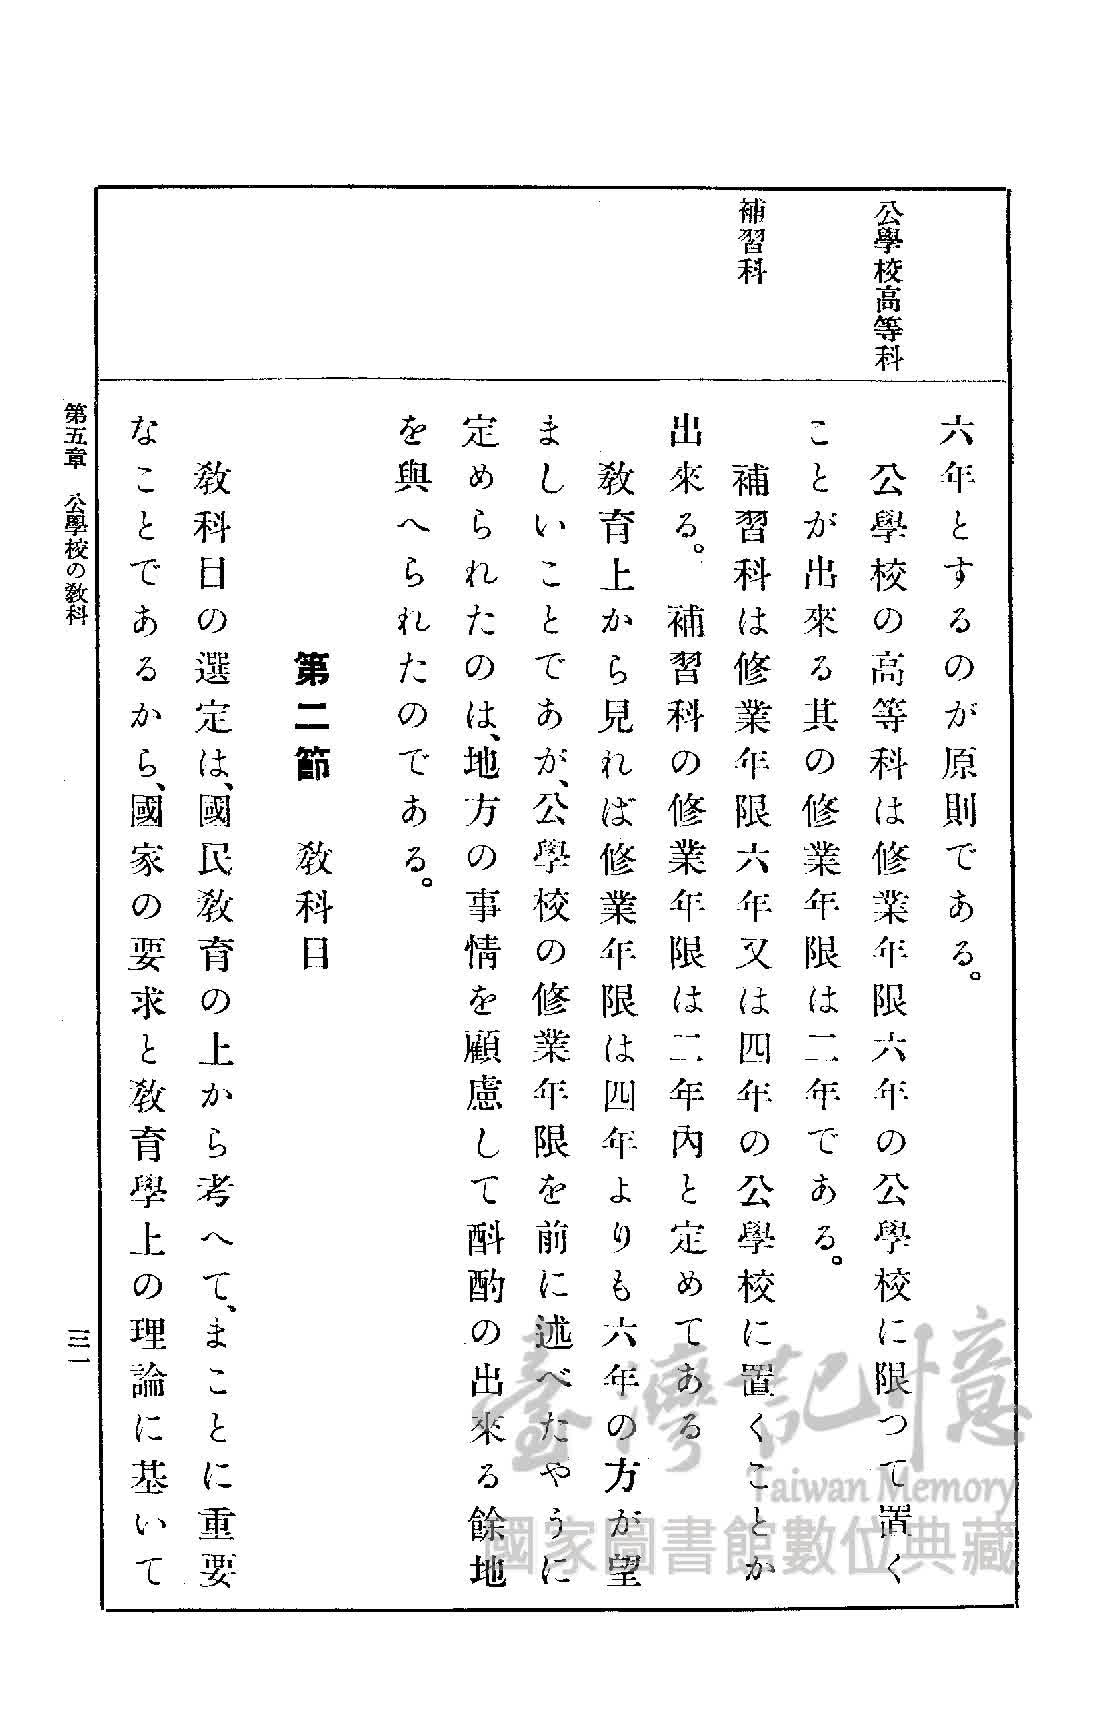 公學校高等科
補習科
六年とするのが原則である。
公學校の高等科は修業年限六年の公學校に限つて置く
ことが出來る其の修業年限は二年である。
補習科は修業年限六年又は四年の公學校に置くことか
出來る。補習科の修業年限は二年內と定めてある
敎育上から見れば修業年限は四年よりも六年の方が望
ましいことであが、公學校の修業年限を前に述べたやうに
定められたのは、地方の事情を顧慮して酙酌の出來る餘地
を與へられたのである。
第二節　敎科目
敎科目の選定は、國民敎育の上から考へて、まことに重要
なことであるから、國家の要求と敎育學上の理論に基いて
第五章　公學校の敎科
三一
臺灣記憶
Taiwan Memory
國家圖書館數位典藏